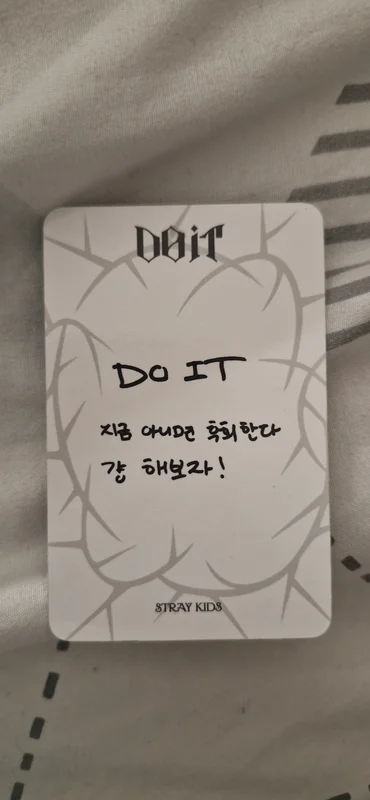 DO iT
DO IT
지금 아니면 후회한다
걍 해보자!
STRAY KIDS